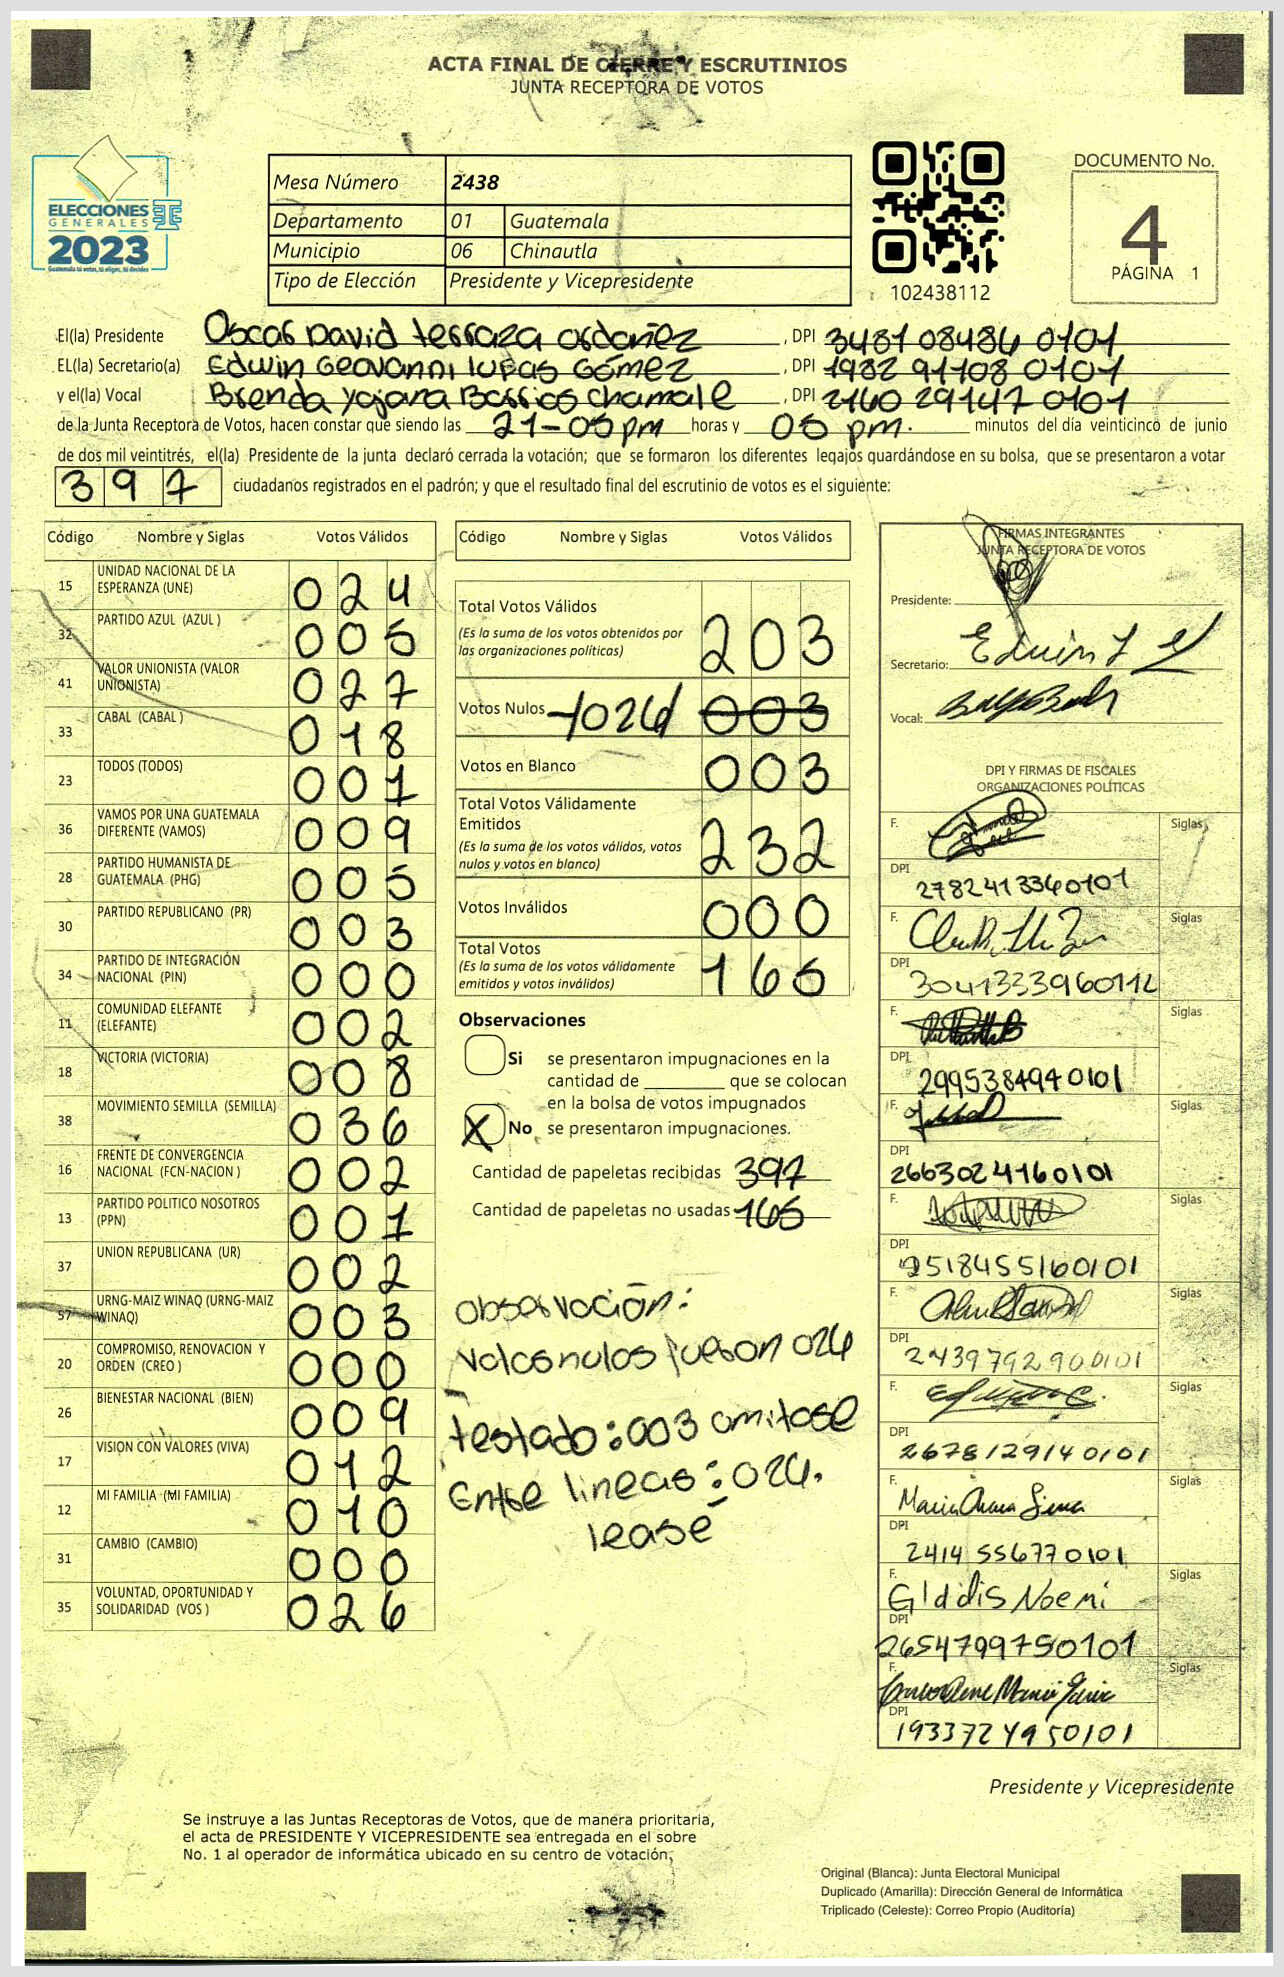 ACTA FINAL DE CIERRE Y ESCRUTINIOS
JUNTA RECEPTORA DE VOTOS
ELECCIONES
GENERALES
2023
Guatemala tú votas, tú eliges, tú decides
Mesa Número 2438
Departamento 01 Guatemala
Municipio 06 Chinautla
Tipo de Elección Presidente y Vicepresidente
102438112
DOCUMENTO No.
4
PÁGINA 1
El(la) Presidente Oscar David terraza ordoñez , DPI 3481 08486 0101
EL(la) Secretario(a) Edwin Geovanni lupas Gómez , DPI 1982 91108 0101
y el(la) Vocal Brenda Yajara Barrios Chamale , DPI 2160 29147 0101
de la Junta Receptora de Votos, hacen constar que siendo las 21-05pm horas y 05 pm. minutos del día veinticinco de junio
de dos mil veintitrés, el(la) Presidente de la junta declaró cerrada la votación; que se formaron los diferentes legajos quardándose en su bolsa, que se presentaron a votar
397 ciudadanos registrados en el padrón; y que el resultado final del escrutinio de votos es el siguiente:
Código Nombre y Siglas Votos Válidos
15 UNIDAD NACIONAL DE LA ESPERANZA (UNE) 024
32 PARTIDO AZUL (AZUL ) 005
41 VALOR UNIONISTA (VALOR UNIONISTA) 027
33 CABAL (CABAL ) 018
23 TODOS (TODOS) 001
36 VAMOS POR UNA GUATEMALA DIFERENTE (VAMOS) 009
28 PARTIDO HUMANISTA DE GUATEMALA (PHG) 005
30 PARTIDO REPUBLICANO (PR) 003
34 PARTIDO DE INTEGRACIÓN NACIONAL (PIN) 000
11 COMUNIDAD ELEFANTE (ELEFANTE) 002
18 VICTORIA (VICTORIA) 008
38 MOVIMIENTO SEMILLA (SEMILLA) 036
16 FRENTE DE CONVERGENCIA NACIONAL (FCN-NACION ) 002
13 PARTIDO POLITICO NOSOTROS (PPN) 001
37 UNION REPUBLICANA (UR) 002
57 URNG-MAIZ WINAQ (URNG-MAIZ WINAQ) 003
20 COMPROMISO, RENOVACION Y ORDEN (CREO ) 000
26 BIENESTAR NACIONAL (BIEN) 009
17 VISION CON VALORES (VIVA) 012
12 MI FAMILIA (MI FAMILIA) 010
31 CAMBIO (CAMBIO) 000
35 VOLUNTAD, OPORTUNIDAD Y SOLIDARIDAD (VOS ) 026
Código Nombre y Siglas Votos Válidos
Total Votos Válidos 203
(Es la suma de los votos obtenidos por
las organizaciones políticas)
Votos Nulos 026 003
Votos en Blanco 003
Total Votos Válidamente
Emitidos 232
(Es la suma de los votos válidos, votos
nulos y votos en blanco)
Votos Inválidos 000
Total Votos 165
(Es la suma de los votos válidamente
emitidos y votos inválidos)
Observaciones
Si se presentaron impugnaciones en la
cantidad de ________ que se colocan
en la bolsa de votos impugnados
X No se presentaron impugnaciones.
Cantidad de papeletas recibidas 397
Cantidad de papeletas no usadas 165
observación:
Votos nulos fueron 026
testado: 003 omitase
Entre lineas: 026.
lease
FIRMAS INTEGRANTES
JUNTA RECEPTORA DE VOTOS
Presidente:
Secretario: Edwin L
Vocal:
DPI Y FIRMAS DE FISCALES
ORGANIZACIONES POLÍTICAS
F. Siglas
DPI 2782413360101
F. Siglas
DPI 3041333960112
F. Siglas
DPI 2995384940101
F. Siglas
DPI 2663024160101
F. Siglas
DPI 2518455160101
F. Siglas
DPI 2439792900101
F. Siglas
DPI 2678129140101
F. Siglas
DPI 2414 556770101
F. Glddis Noemi Siglas
DPI 2654799750101
F. Siglas
DPI 1933724950101
Presidente y Vicepresidente
Se instruye a las Juntas Receptoras de Votos, que de manera prioritaria,
el acta de PRESIDENTE Y VICEPRESIDENTE sea entregada en el sobre
No. 1 al operador de informática ubicado en su centro de votación.
Original (Blanca): Junta Electoral Municipal
Duplicado (Amarilla): Dirección General de Informática
Triplicado (Celeste): Correo Propio (Auditoría)